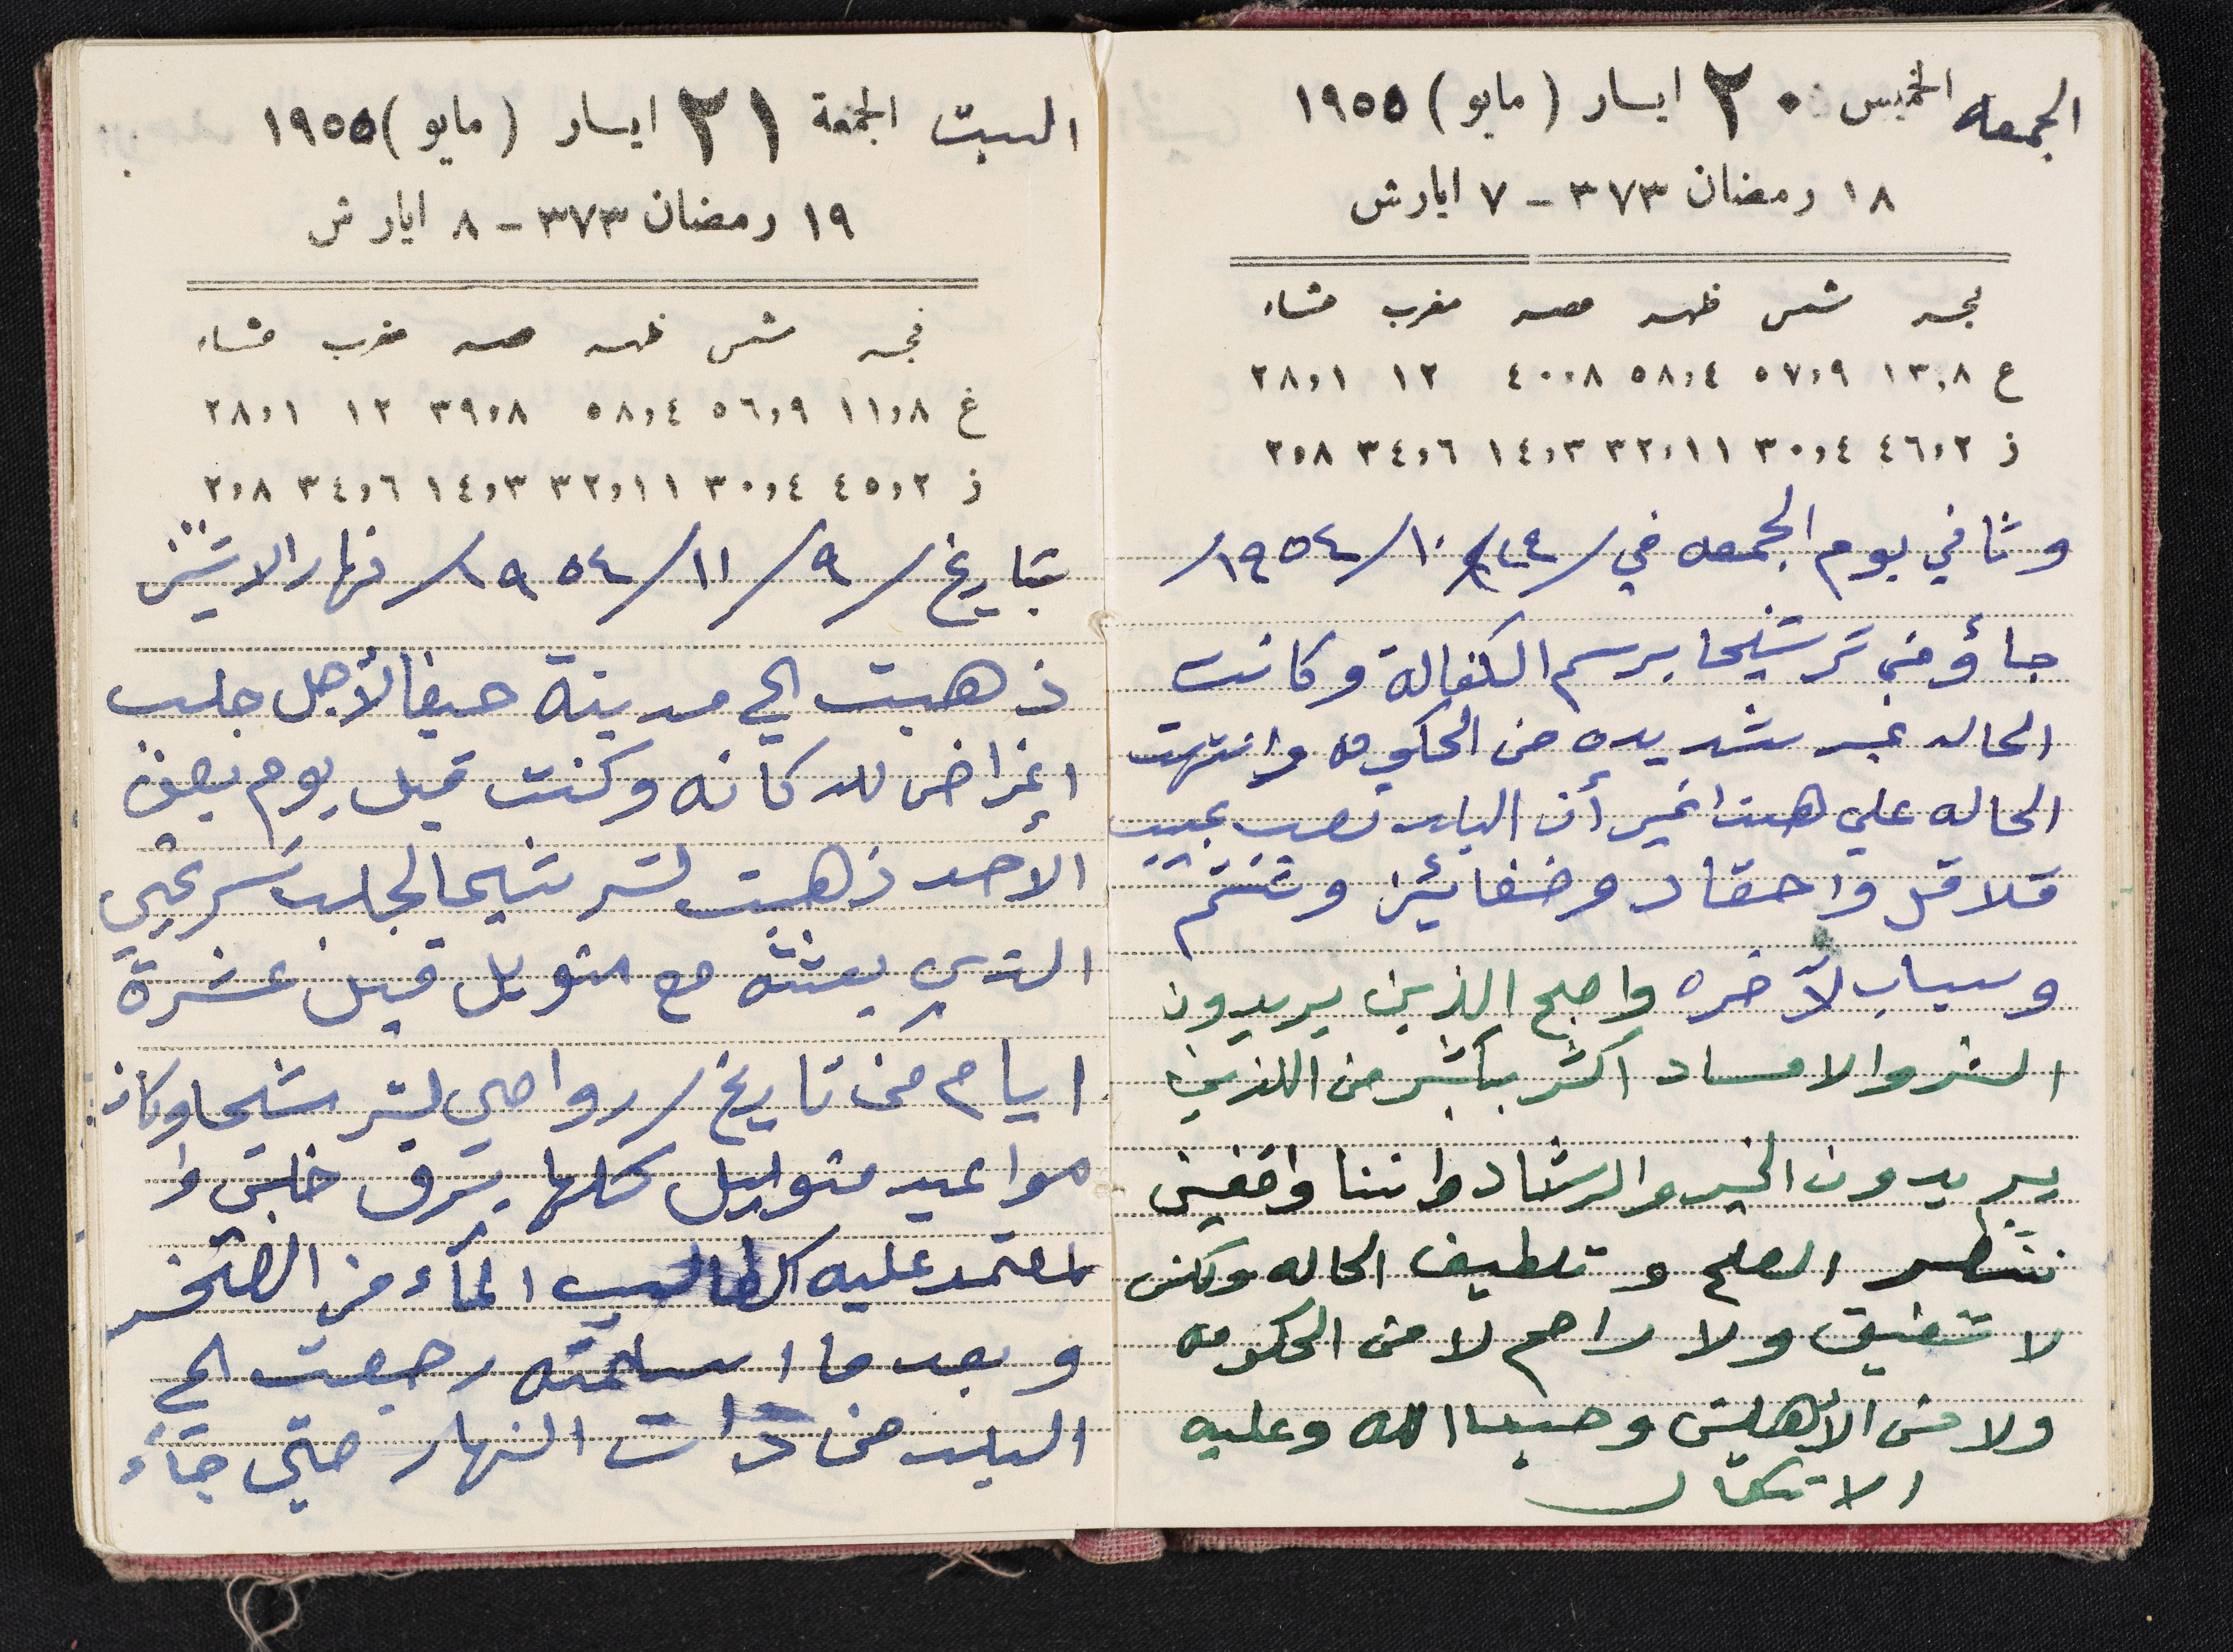 الجمعه الخميس ٢٠ ايار (مايو) ١٩٥٥
١٨ رمضان ٣٧٣ - ٧ ايار ش
فجر شمس ظهر عصر مغرب عشاء
غ ١٣,٨ ٥٧,٩ ٥٨,٤ ٤٠,٨ ١٢ ٢٨,١
ز ٤٦,٢ ٣٠,٤ ٣٢,١١ ١٤,٣ ٣٤,٦ ٢,٨
وثاني يوم الجمعه في / /١٠/١٩٥٤/
جاؤ من ترشيحا برسم الكفالة وكانت
الحاله غير شديده من الحكومه وانتهت
الحاله على هذا غير أن البلد تصب
قلاقل واحقاد وضغائين وشتم
وسباب لآخره واصبح الذين يريدون
الشر والافساد اكثر بكثير من اللذين
يريدون الخير والرشاد واننا واقفين
ننتظر الصلح وتلطيف الحاله ولكن
لا شفيق ولا راحم لا من الحكومه
ولا من الأهلين وحسبنا الله وعليه
الاتكال
السبت الجمعة ٢١ ايار (مايو) ١٩٥٥
١٩ رمضان ٣٧٣ - ٨ ايار ش
فجر شمس ظهر عصر مغرب عشاء
غ ١١,٨ ٥٦,٩ ٥٨,٤ ٣٩,٨ ١٢ ٢٨,١
ز ٤٥,٢ ٣٠,٤ ٣٢,١١ ١٤,٣ ٣٤,٦ ٢,٨
بتاريخ /٩/١١/١٩٥٤/ نهار الاثنين
ذهبت الى مدينة حيفا لأجل جلب
اغراض للدكانه وكنت قبل يوم بصف
الاحد ذهبت لترشيحا لجلب
الذي بعثته مع متويل قبل عشرة
ايام من تاريخ / رواحي لترشيحا وكان
مواعيد متويل كلها برق خلبن وا
لمعتمد عليه كطالب المآء من الصخر
وبعد ما استلمته رجعت الى
البلد من ذات النهار حتى جآء